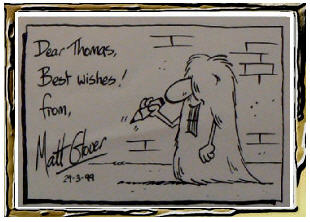 Dear Thomas,
Best wishes!
from,
Matt Glover
29-3-99